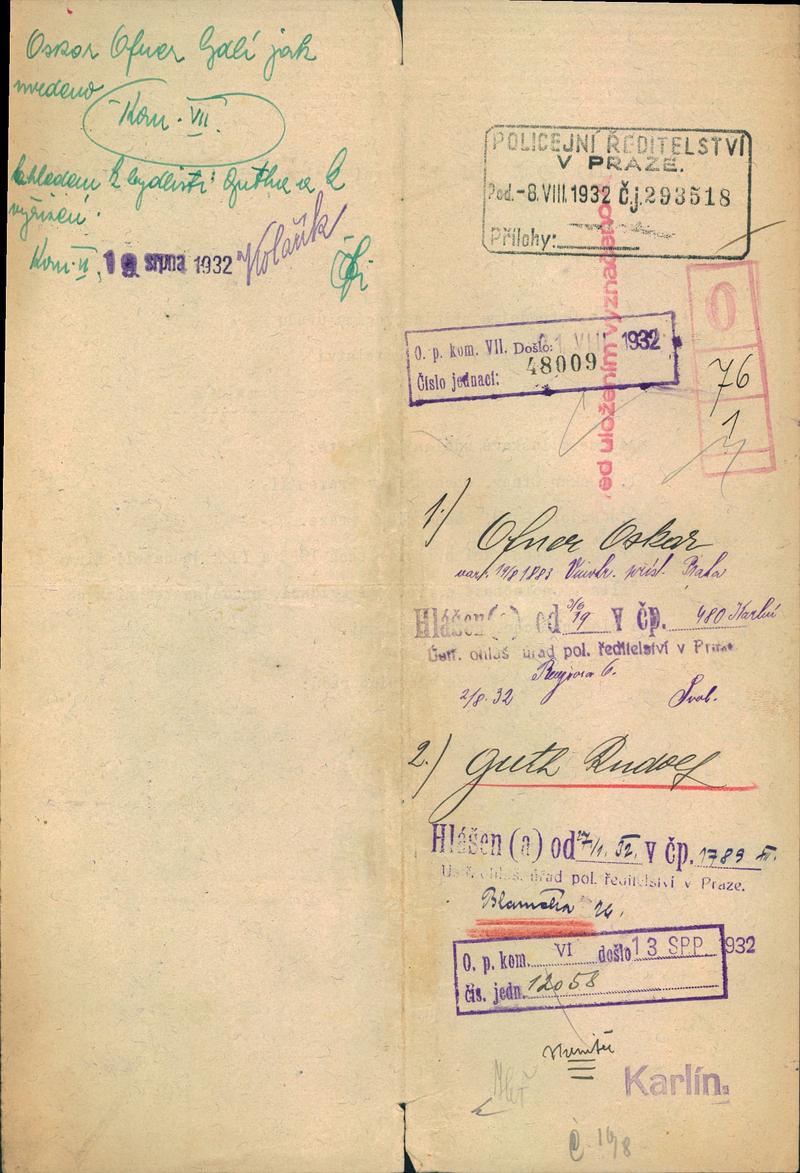 Oskar Ofner bydlí jak
uvedeno
Kom. VII.
vzhledem k bydlišti Gutha a k
vyřízení.
Kom. VI, 10 srpna 1932 Kolařík
POLICEJNÍ ŘEDITELSTVÍ
V PRAZE.
Pod. -8.VIII.1932 Č.j. 293518
Přílohy:
před uložením vyznačeno
0
76
1
O. p. kom. VII. Došlo: 1 VIII 1932
Číslo jednací: 48009
1.) Ofner Oskar
nar. 19/8 1883 přísl. Praha
Hlášen(a) od 3/6 19 v čp. 480 Karlín
Ústř. ohlaš. úřad pol. ředitelství v Praze.
6.
2/8.32
2.) Guth Rudolf
Hlášen(a) od 27/1. 32. v čp. 1789
Ústř. ohlaš. úřad pol. ředitelství v Praze.
24.
O. p. kom. VI došlo 13 SRP 1932
čís. jedn. 12058
Karlín.